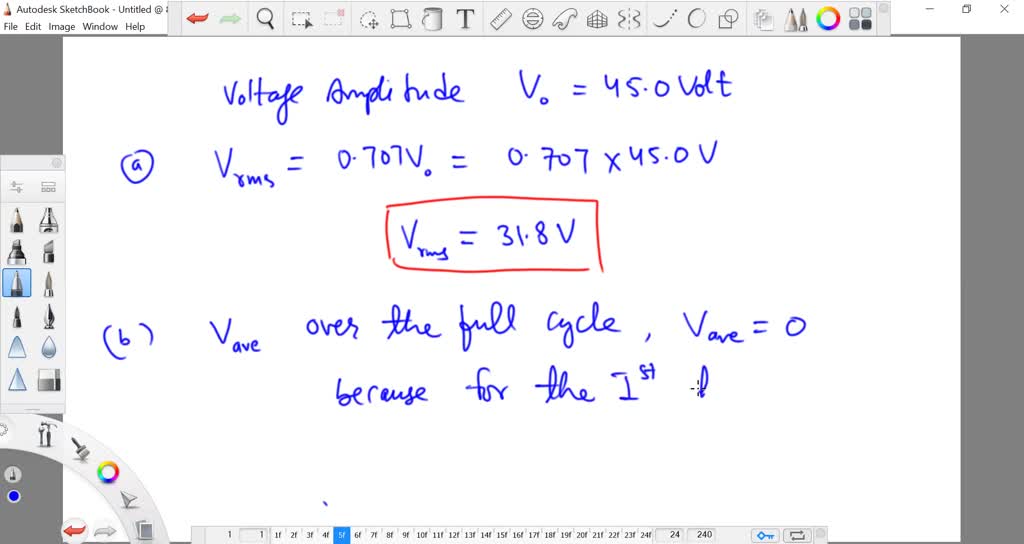 Autodesk SketchBook - Untitled @ 8
File Edit Image Window Help
Voltage Amplitude V₀ = 45.0 Volt
(a) Vrms = 0.707V₀ = 0.707 × 45.0 V
Vrms = 31.8 V
(b) Vave over the full cycle, Vave = 0
because for the Ist
1 1 1f 2f 3f 4f 5f 6f 7f 8f 9f 10f 11f 12f 13f 14f 15f 16f 17f 18f 19f 20f 21f 22f 23f 24f 24 240